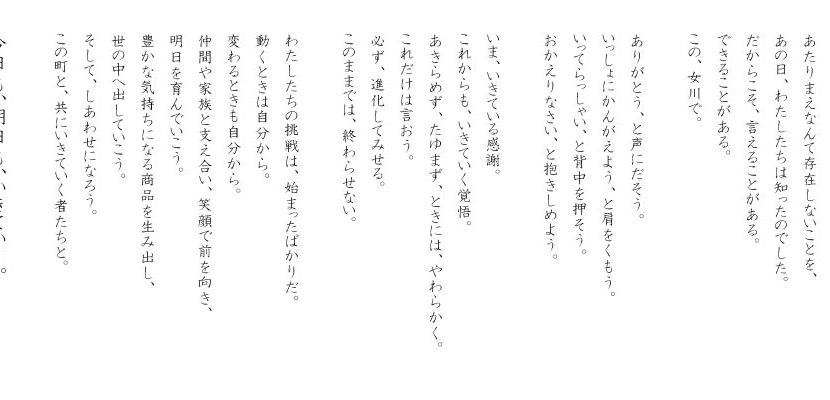 あたりまえなんて存在しないことを、
あの日、わたしたちは知ったのでした。
だからこそ、言えることがある。
できることがある。
この、女川で。
ありがとう、と声にだそう。
いっしょにかんがえよう、と肩をくもう。
いってらっしゃい、と背中を押そう。
おかえりなさい、と抱きしめよう。
いま、いきている感謝。
これからも、いきていく覚悟。
あきらめず、たゆまず、ときには、やわらかく。
これだけは言おう。
必ず、進化してみせる。
このままでは、終わらせない。
わたしたちの挑戦は、始まったばかりだ。
動くときは自分から。
変わるときも自分から。
仲間や家族と支え合い、笑顔で前を向き、
明日を育んでいこう。
豊かな気持ちになる商品を生み出し、
世の中へ出していこう。
そして、しあわせになろう。
この町と、共にいきていく者たちと。